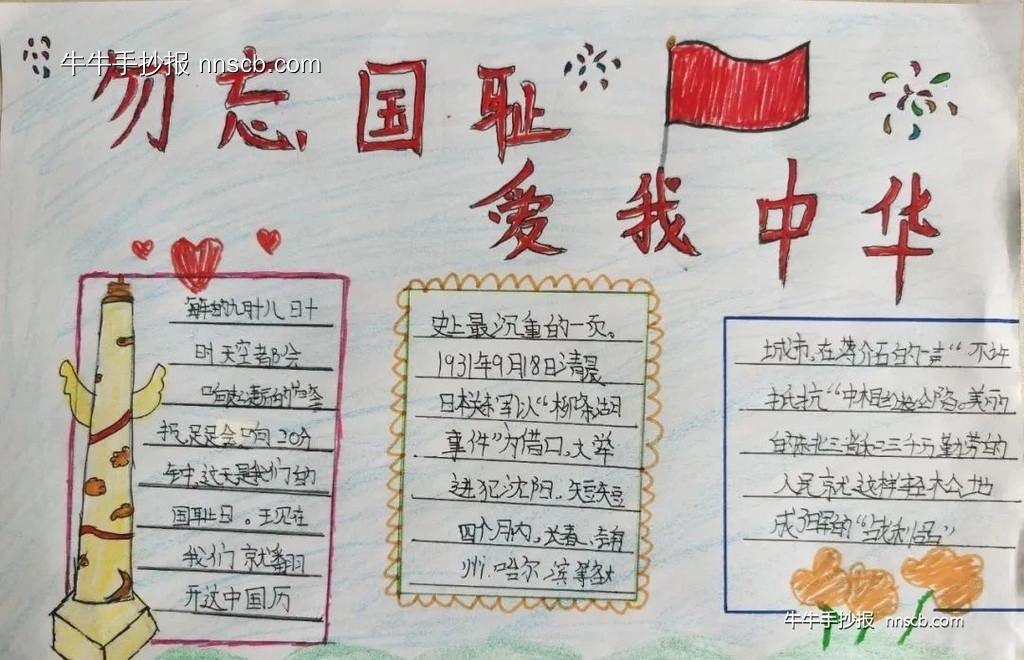 牛牛手抄报 nnscb.com
勿忘国耻
爱我中华
每年的九月十八日十
时天空都会
响起凄厉的防空
报,足足会响20分
钟,这天是我们的
国耻日。王见在
我们就翻
开这中国历
史上最沉重的一页。
1931年9月18日清晨
日本关东军以“柳条湖
事件”为借口,大举
进犯沈阳,短短
四个月内,长春、吉
州、哈尔滨等
城市,在蒋介石的一声“不许
抵抗“中相继沦陷。美丽
的东北三省和三千万勤劳的
人民就这样轻松地
成了日军的“战利品”
牛牛手抄报 nnscb.com